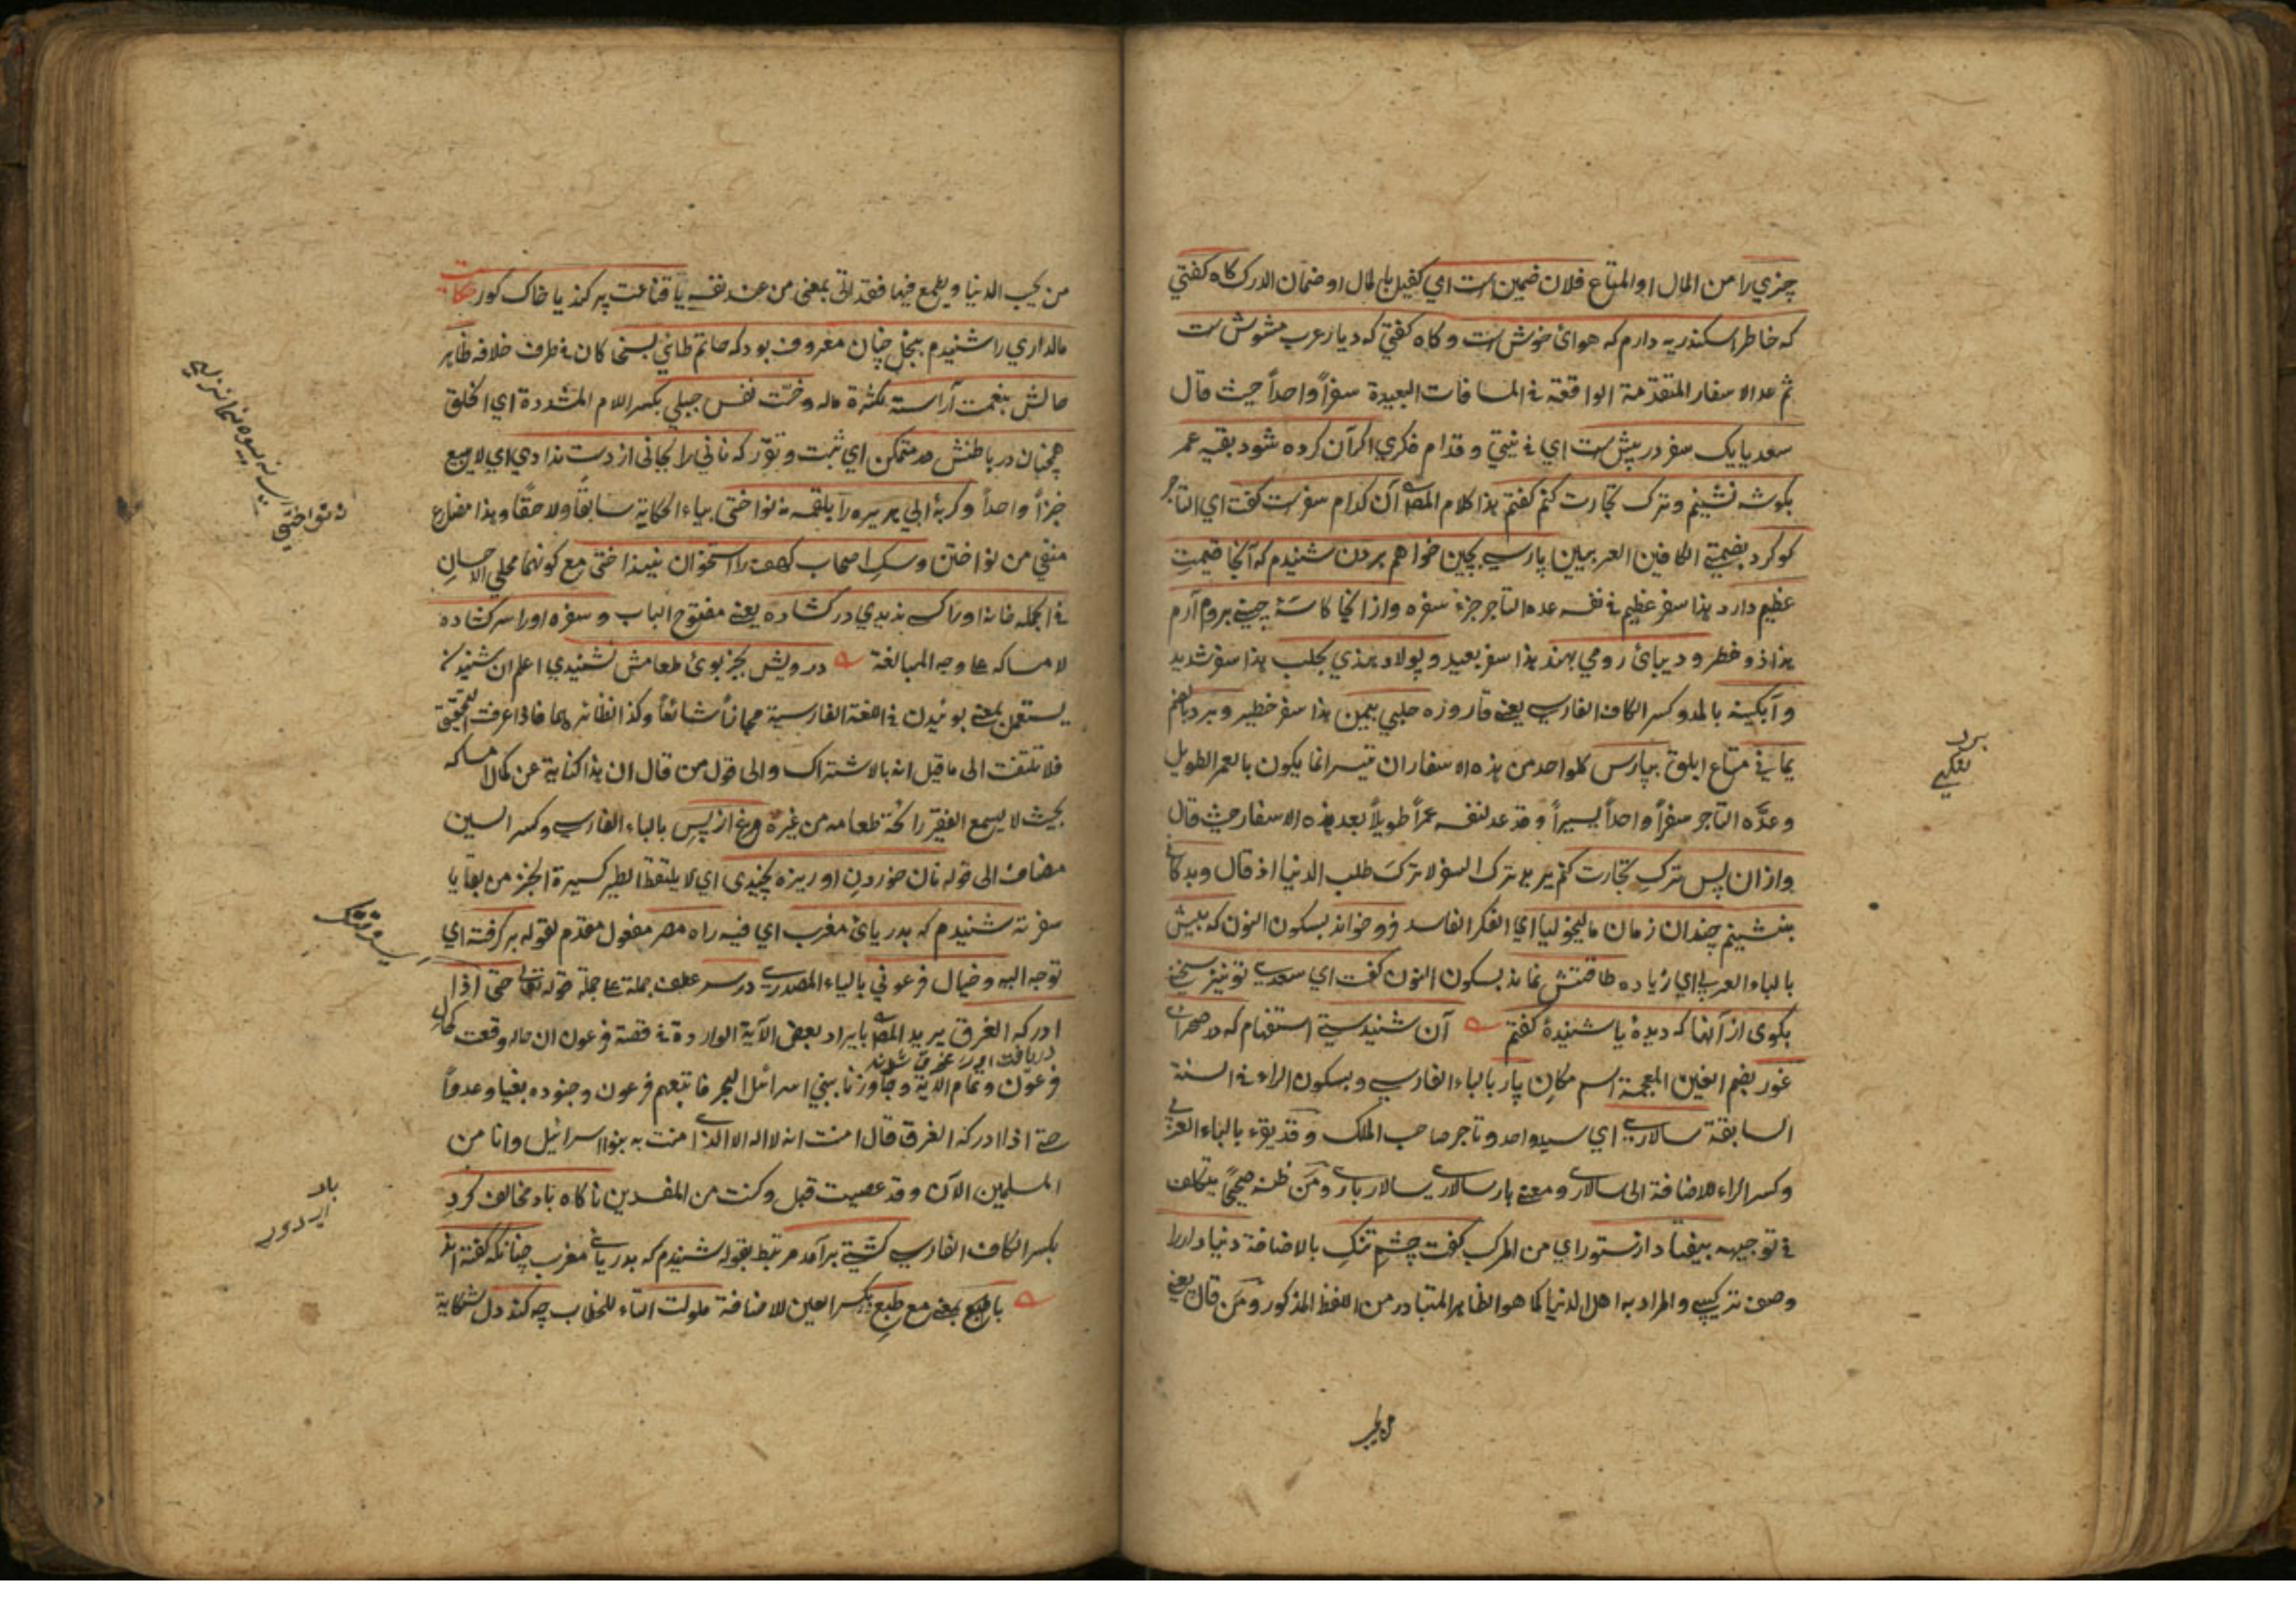 چیزی را من المال او المتاع فلان ضمین است ای کفیل بالمال او ضمان الدرک کاه کفتی
که خاطر اسکندریه دارم که هوای خوش است و کاه کفتی که دیار عرب مشوش است
ثم عد الاسفار المتقدمة الواقعة فی المسافات البعیدة سفراً واحداً حیث قال
سعدیا یک سفر در پیش است ای فی نیتی و قدام فکری اکر آن کرده شود بقیه عمر
بکوشه نشینم و ترک تجارت کنم کفتم هذا کلام المص آن کدام سفر است کفت ای التاجر
کوکرد بضمتی الکافین العربیین پارسی بچین خواهم بردن شنیدم که آنجا قیمت
عظیم دارد هذا سفر عظیم فی نفسه عده التاجر جزء سفره و از آنجا کاسهٔ چینی بروم آرم
هذا ذو خطر و دیبای رومی بهند هذا سفر بعید و پولاد هندی بحلب هذا سفر شدید
و آبکینه بالمد و کسر الکاف الفارسی یعنی قاروره حلبی بیمن هذا سفر خطیر و برد بالضم
یمانی متاع ابلق بپارس کل واحد من هذه الاسفار ان تیسر انما یکون بالعمر الطویل
وعدّه التاجر سفراً واحداً یسیراً و قد عد لنفسه عمراً طویلاً بعد هذه الاسفار حیث قال
و از ان پس ترک تجارت کنم یرید ترک السفر لا ترک طلب الدنیا اذ قال و بدکانی
بنشینم چندان ازمان مالیخولیا ای الفکر الفاسد فرو خواند بسکون النون که بیش
بالباء العربی ای زیاده طاقتش نماند بسکون النون کفت ای سعدی تو نیز سخنی
بکوی از آنها که دیدهٔ یا شنیدهٔ کفتم آن شنیدستی استفهام که در صحرای
غور بضم الغین المعجمة اسم مکان پار بالباء الفارسی و بسکون الراء فی السنة
السابقة سالاری ای سید واحد و تاجر صاحب الملک و قد یقرء بالباء العربی
و کسر الراء للاضافة الی سالار و معنی بار سالاری سالار باری و من ظنه صحیحاً یتکلف
فی توجیهه بیفتاد از ستور ای من المرکب کفت چشم تنک بالاضافة دنیا دار را
وصف ترکیبی و المراد به اهل الدنیا کما هو الظاهر المتبادر من اللفظ المذکور و من قال یعنی
برد
من یحب الدنیا و یطمع فیها فقد اتی بمعنی من عند نفسه یا قناعت پر کند یا خاک کور حکایت
مالداری را شنیدم ببخل چنان معروف بود که حاتم طائی بسخا کان فی طرف خلافه ظاهر
حالش بنعمت آراسته بکثرة ماله و خسّت نفس جبلی بکسر اللام المشددة ای الخلق
همچنان در باطنش متمکن ای ثبت و تقرر که نانی را بجانی از دست ندادی ای لا یبیع
خبزاً واحداً و کربهٔ ابی هریره را بلقمه نه نواختی بیاء الحکایة سابقاً و لاحقاً و هذا مضارع
منفی من نواختن و سک اصحاب کهف را استخوان نینداختی مع کونهما محلی الاحسان
فی الجمله خانه او را کس ندیدی در کشاده یعنی مفتوح الباب و سفره او را سر کشاده
لامساکه علی وجه المبالغة درویش بجز بوی طعامش نشنیدی اعلم ان شنیدن
یستعمل بمعنی بوئیدن فی اللغة الفارسیة مجازاً شائعاً و کذا نظائرها فاذا عرفت التحقیق
فلا تلتفت الی ما قیل انه بالاشتراک و الی قول من قال ان هذا کنایة عن کمال امساکه
بحیث لا یسمع الفقیر رائحة طعامه من غیره مرغ از پس بالباء الفارسی و کسر السین
مضاف الی قوله نان خوردن او ریزه نچیدی ای لا یلتقط الطیر کسیرة الخبز من بقایا
سفرته شنیدم که بدریای مغرب ای فیه راه مصر مفعول مقدم لقوله بر کرفته ای
توجه الیه و خیال فرعونی بالیاء المصدری در سر عطف جملة علی جملة قوله تعالی حتی اذا
ادرکه الغرق یرید المص بایراد بعض الآیة الواردة فی قصة فرعون ان حاله وقعت کحال
فرعون و تمام الآیة و جاوزنا ببنی اسرائیل البحر فاتبعهم فرعون و جنوده بغیا و عدواً
حتی اذا ادرکه الغرق قال امنت انه لا اله الا الذی امنت به بنوا اسرائیل و انا من
المسلمین الآن و قد عصیت قبل و کنت من المفسدین ناکاه باد مخالف کرد
بکسر الکاف الفارسی کشتی برآمد مرتبط بقوله شنیدم که بدریای مغرب چنانکه کفته اند
با طبع بمعنی مع طبع بکسر العین للاضافة ملولت التاء للخطاب چه کند دل شکایة